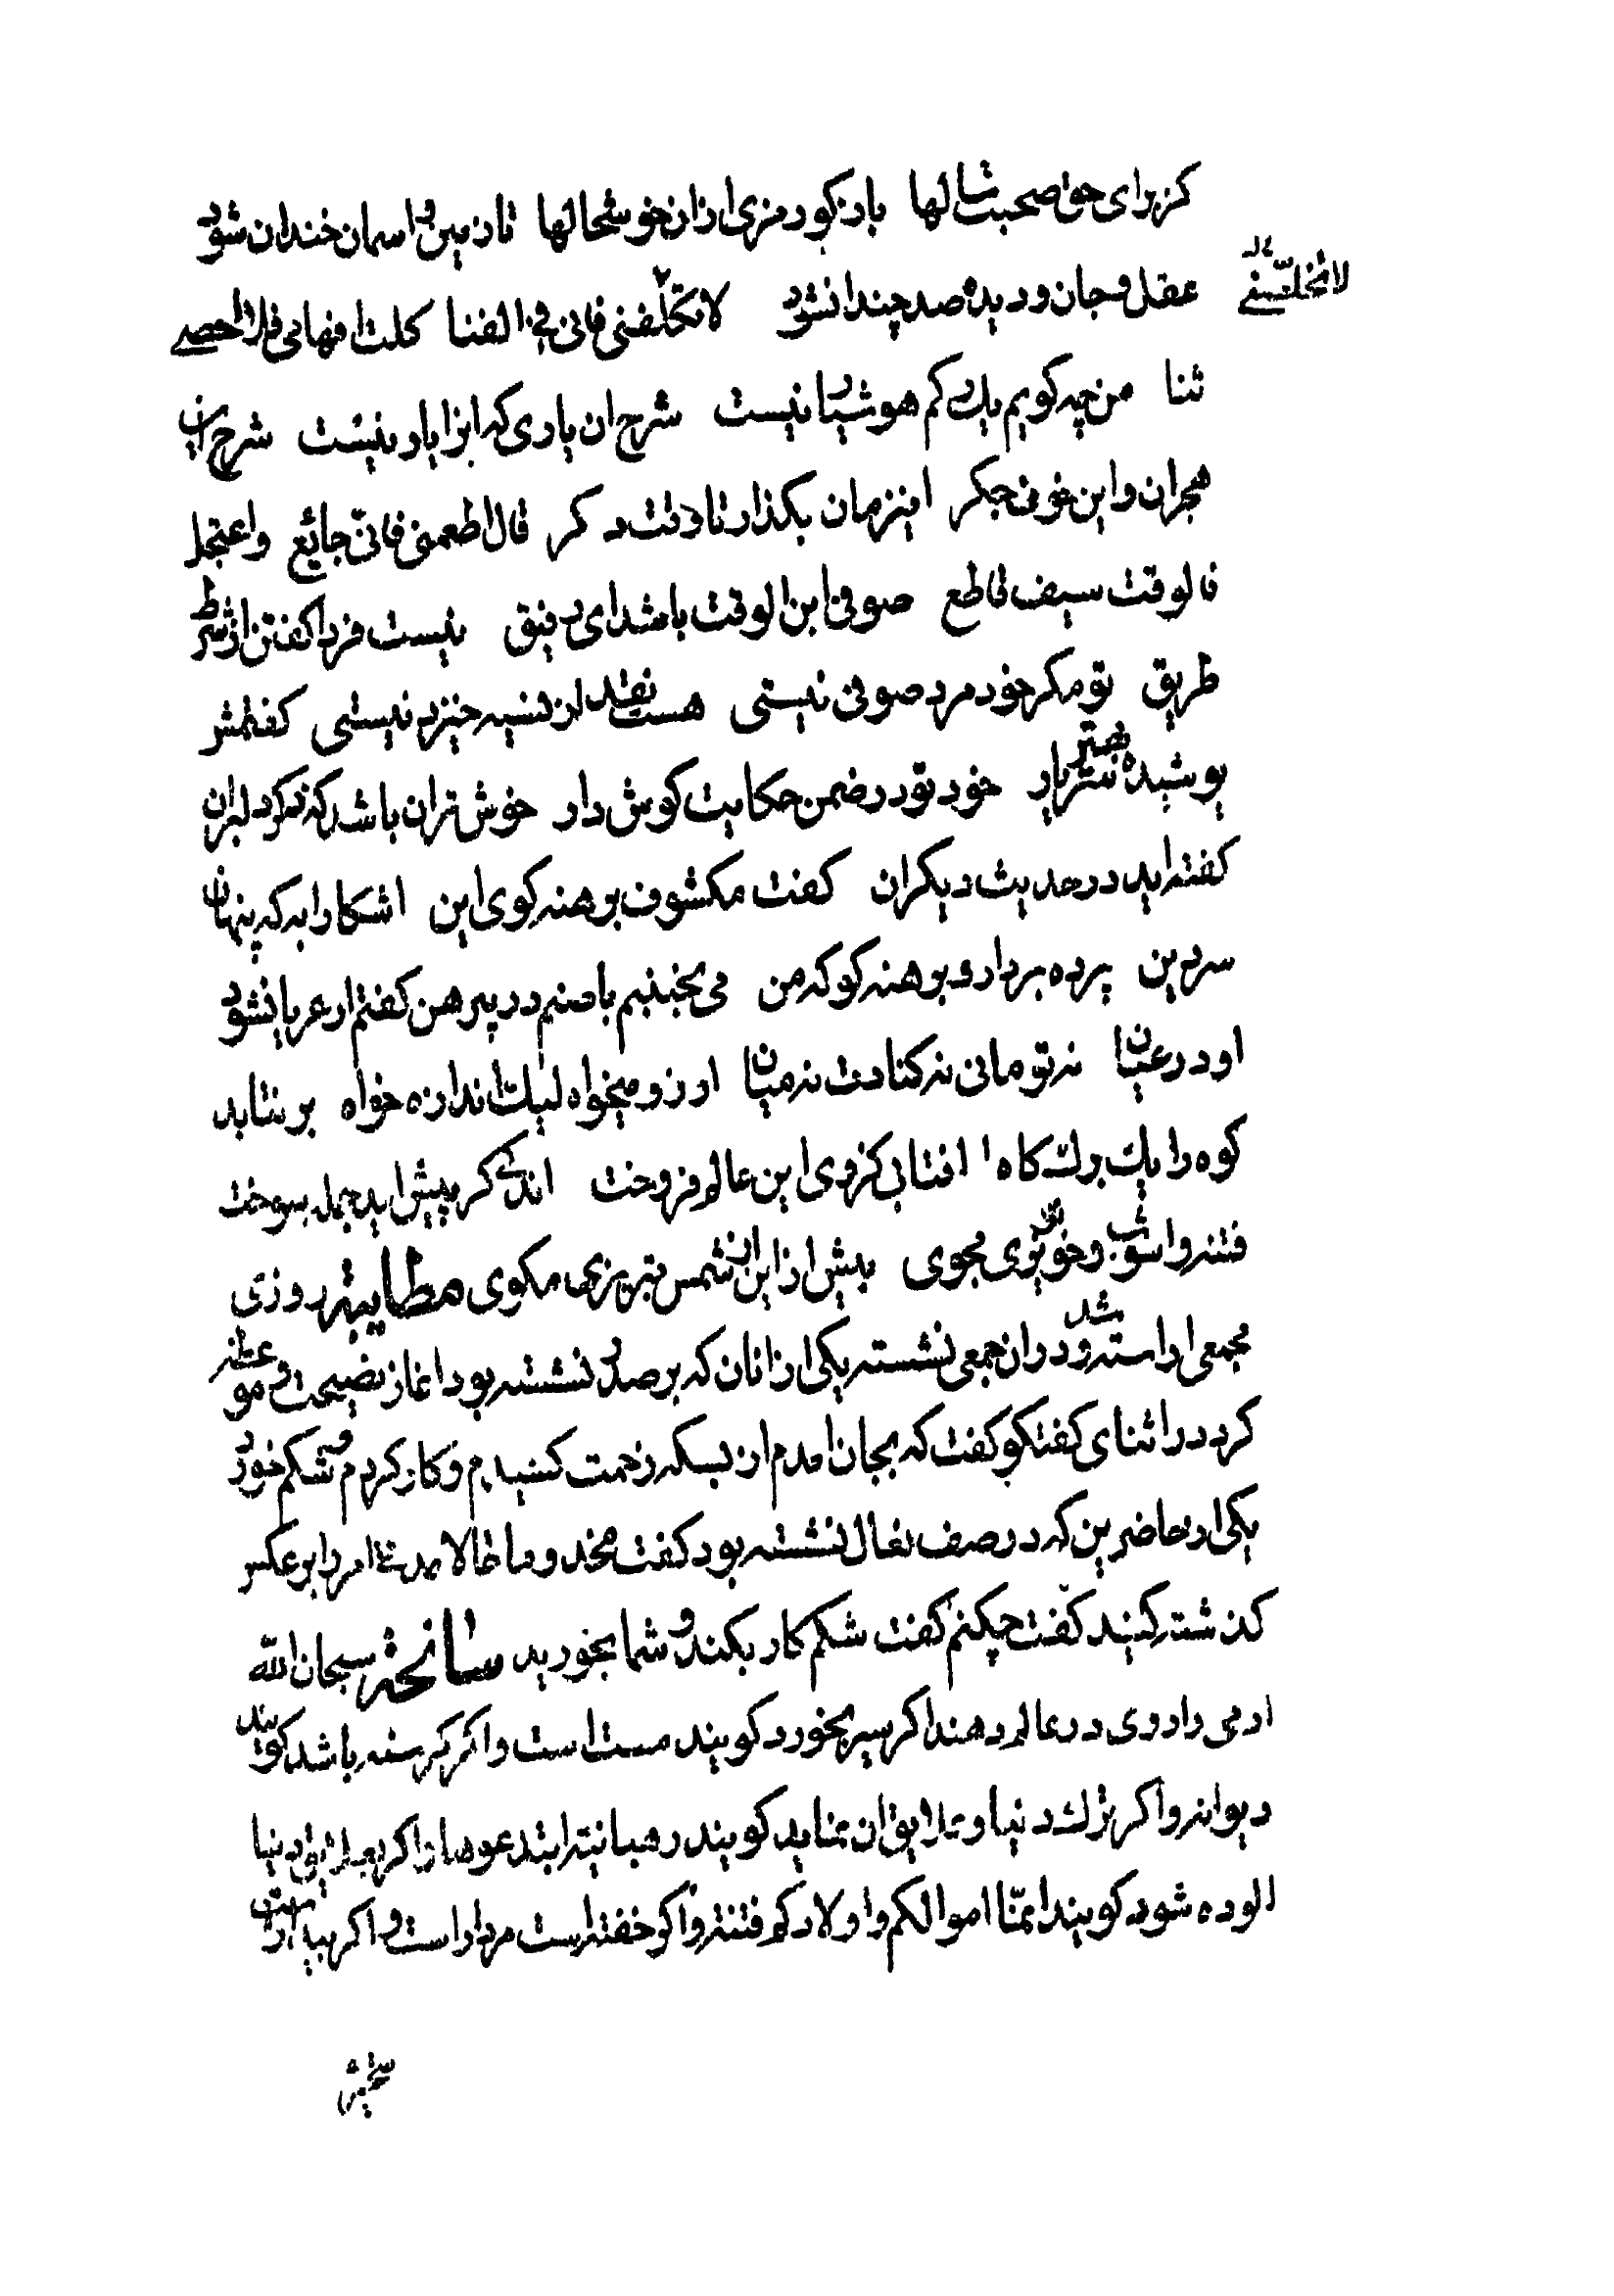 کز برای حق صحبت سالها باز کو رمزی ازان خوشحالها تا زمین و اسمان خندان شود
عقل و جان و دیده صد چندان شود لا تکلفنی فانی فی الفنا کلت افهامی فلا احصی
ثنا من چه کویم یک رکم هوشیار نیست شرح ان یاری که انرا یار نیست شرح این
هجران و این خون جکر این زمان بکذار تا وقت دکر قال اطعمنی فانی جائع واعتجل
فالوقت سیف قاطع صوفی ابن الوقت باشد ای رفیق نیست فردا کفتن از شرط
طریق تو مکر خود مرد صوفی نیستی هست نقد از نسیه خیزد نیستی کفتمش
پوشیده خوشتر سر یار خود تو در ضمن حکایت کوش دار خوش تران باشد که ذکر دلبران
کفته اید در حدیث دیکران کفت مکشوف برهنه کوی این اشکارا به که پنهان
سر دین پرده بردار و برهنه کو که من می نخبنبم باصنم در پیرهن کفتم ار عریان شود
او در عیان نه تو مانی نه کنارت نه میان ارزو میخواه لیک اندازه خواه برنتابد
کوه را یک برک کاه افتابی کزوی این عالم فروخت اندکی کر پیش اید جمله سوخت
فتنه و اشوب و خونریزی مجوی بیش ازین از شمس تبریزی مکوی مطایبة روزی
مجمعی اراسته شد و دران جمعی نشسته یکی ازانان که بر صدر نشسته بود اغاز نصیحت و موعظه
کرد در اثنای کفتکو کفت که بجان امدم از بسکه زحمت کشیدم و کار کردم و شکم خورد
یکی از حاضرین که در صف نعال نشسته بود کفت مخدوما حالا مدتی امر را بر عکس
کذشته کنید کفت چکنم کفت شکم کار بکند و شما بخورید سانحة سبحان الله
ادمی را روی در عالم دهند اکر سیر بخورد کویند مست است واکر کرسنه باشد کویند
دیوانه واکر ترک دنیا و علایق ان نماید کویند رهبانیة ابتدعوها واکر بعلایق دنیا
الوده شود کویند انما اموالکم و اولادکم فتنة واکر خفته است مردار است و اکر بیدار